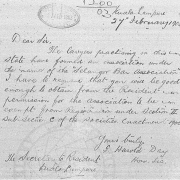 1300
03
Kuala Lumpur
27 February 190
Dear Sir.
The lawyers practising in this
state have formed an association under
the name of the Selangor Bar Association
I have to request that you will be good
enough to obtain from the Resident
permission for the association to be
under Section
Sub section C of the Societies Enactment
Yours truly
Hewitt Day
Hon. Sec.
The Secretary to Resident
Kuala Lumpur